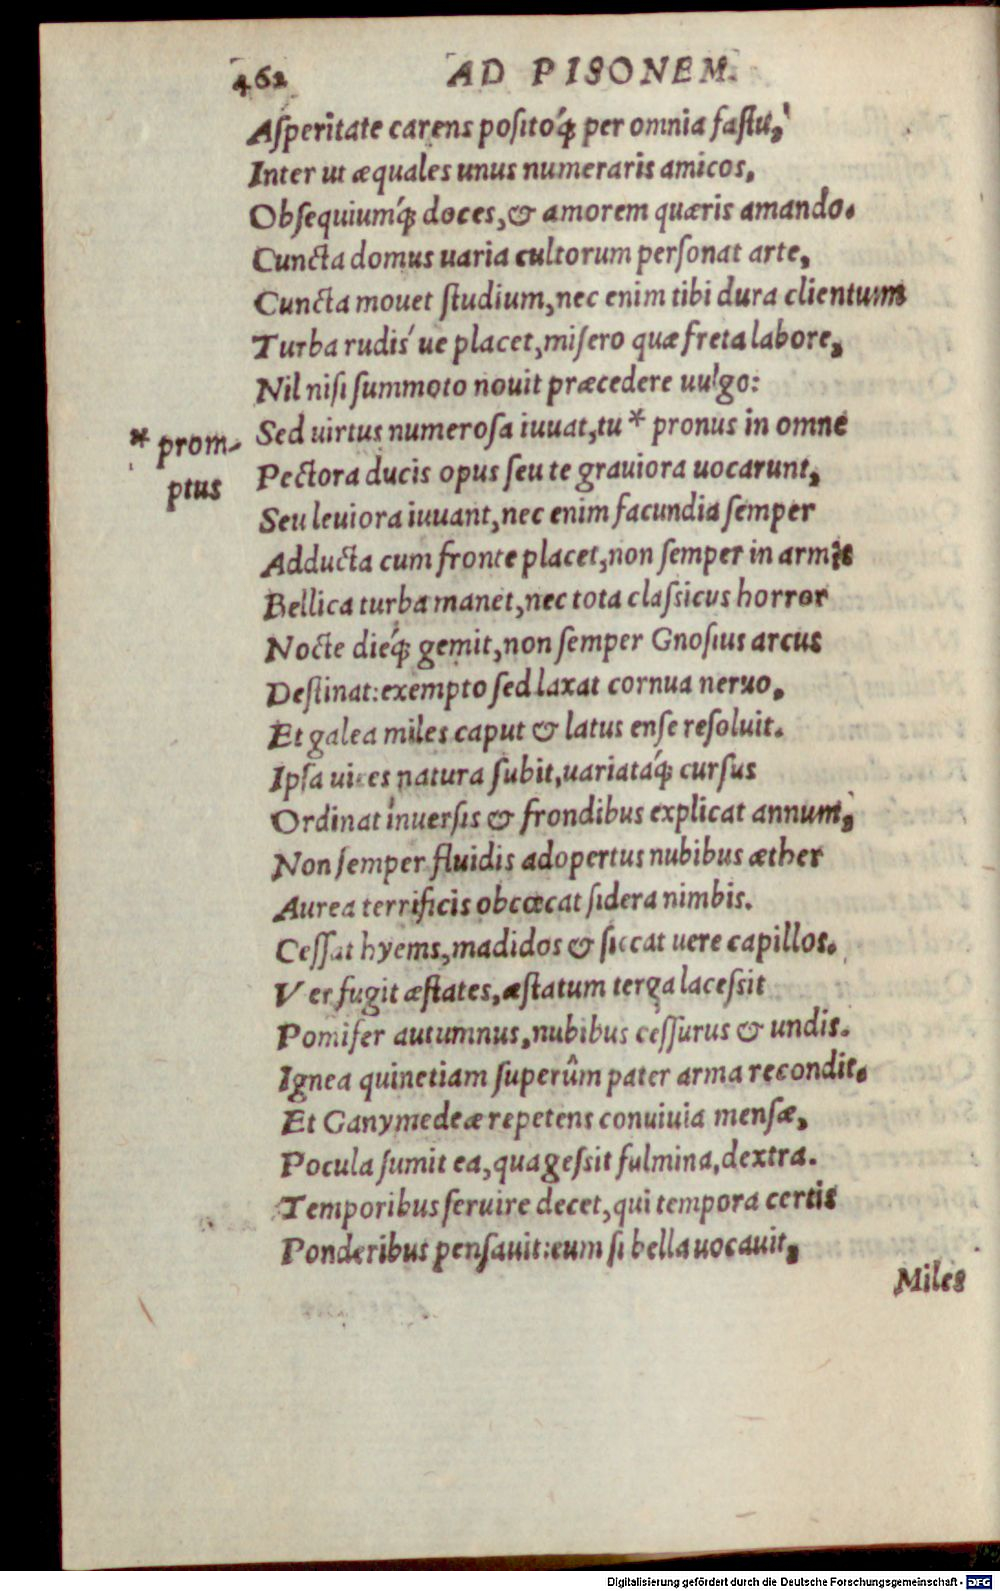 462 AD PISONEM.
Aſperitate carens poſitoq́; per omnia faſtu,
Inter ut æquales unus numeraris amicos,
Obſequiumq́; doces, & amorem quæris amando.
Cuncta domus uaria cultorum perſonat arte,
Cuncta mouet ſtudium, nec enim tibi dura clientum
Turba rudiś ue placet, miſero quæ freta labore,
Nil niſi ſummoto nouit præcedere uulgo:
Sed uirtus numeroſa iuuat, tu * pronus in omne
* prom-
ptus
Pectora ducis opus ſeu te grauiora uocarunt,
Seu leuiora iuuant, nec enim facundia ſemper
Adducta cum fronte placet, non ſemper in armis
Bellica turba manet, nec tota claſsicus horror
Nocte dieq́; gemit, non ſemper Gnoſius arcus
Deſtinat: exempto ſed laxat cornua neruo,
Et galea miles caput & latus enſe reſoluit.
Ipſa uices natura ſubit, uariataq́; curſus
Ordinat inuerſis & frondibus explicat annum,
Non ſemper fluidis adopertus nubibus æther
Aurea terrificis obcœcat ſidera nimbis.
Ceſſat hyems, madidos & ſiccat uere capillos.
Ver fugit æſtates, æſtatum terga laceſsit
Pomifer autumnus, nubibus ceſſurus & undis.
Ignea quinetiam ſuperûm pater arma recondit.
Et Ganymedeæ repetens conuiuia menſæ,
Pocula ſumit ea, qua geſsit fulmina, dextra.
Temporibus ſeruire decet, qui tempora certis
Ponderibus penſauit: eum ſi bella uocauit,
Miles
Digitalisierung gefördert durch die Deutsche Forschungsgemeinschaft - DFG